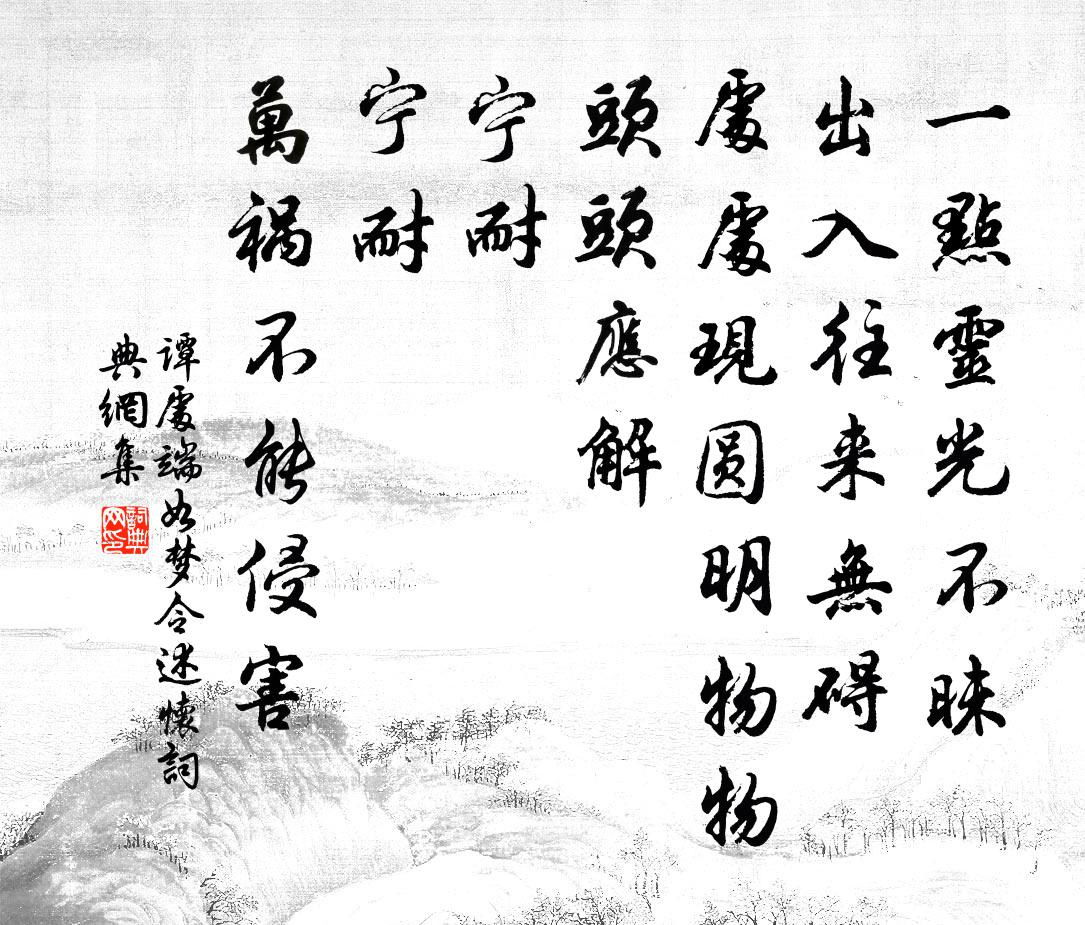 一點靈光不昧
出入往来無碍
處處現圆明物物
頭頭應解
宁耐
宁耐
萬禍不能侵害
谭處端如梦令述懷詞
典網集
詞典网印